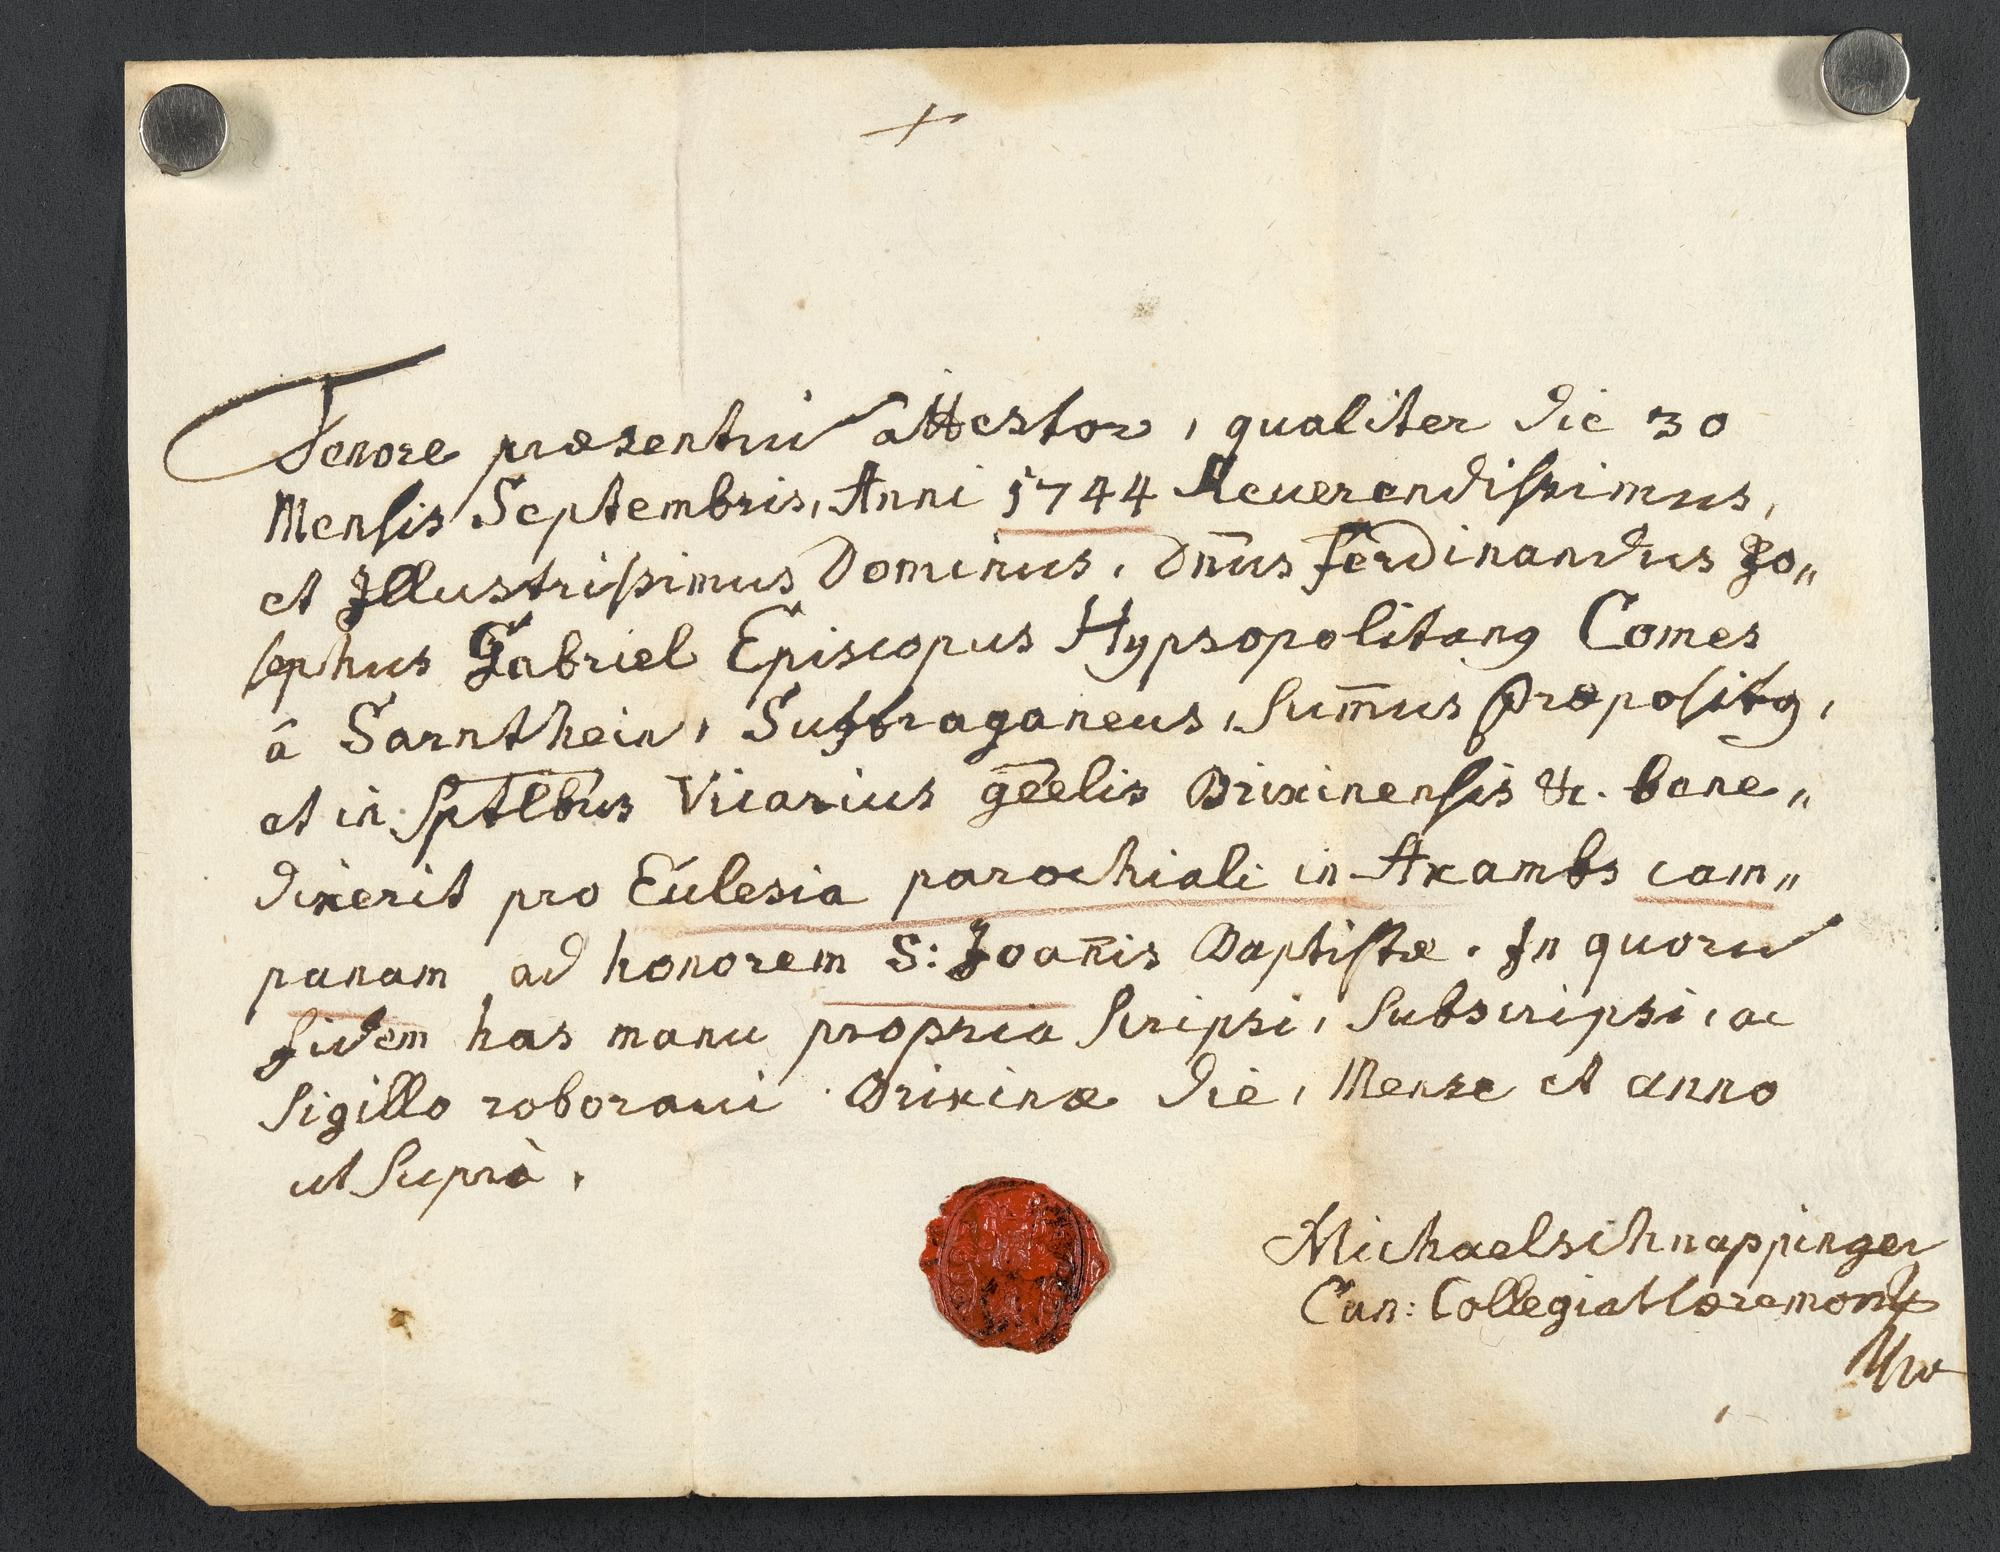 +
Tenore præsentiu attestor, qualiter die 30
Mensis Septembris, Anni 1744 Reuerendissimus,
et Illustrissimus Dominus, Dn̄us Ferdinandus Jo„
sephus Gabriel Episcopus Hypsopolitanꝰ Comes
â Sarnthein, Suffraganeus, Sum̄us Præpositꝰ,
et in Sptlb̄us Vicarius gēēlis Brixinensis &c. bene„
dixerit pro Ecclesia parochiali in Axambs cam„
panam ad honorem S: Joan̄is Baptistæ. In quoru
fidem has manu propria scripsi, subscripsi, ac
sigillo roboraui Brixinæ die, Mense et anno
ut suprà.
Michael Schnappinger
Can: Colleg: at Cæremon